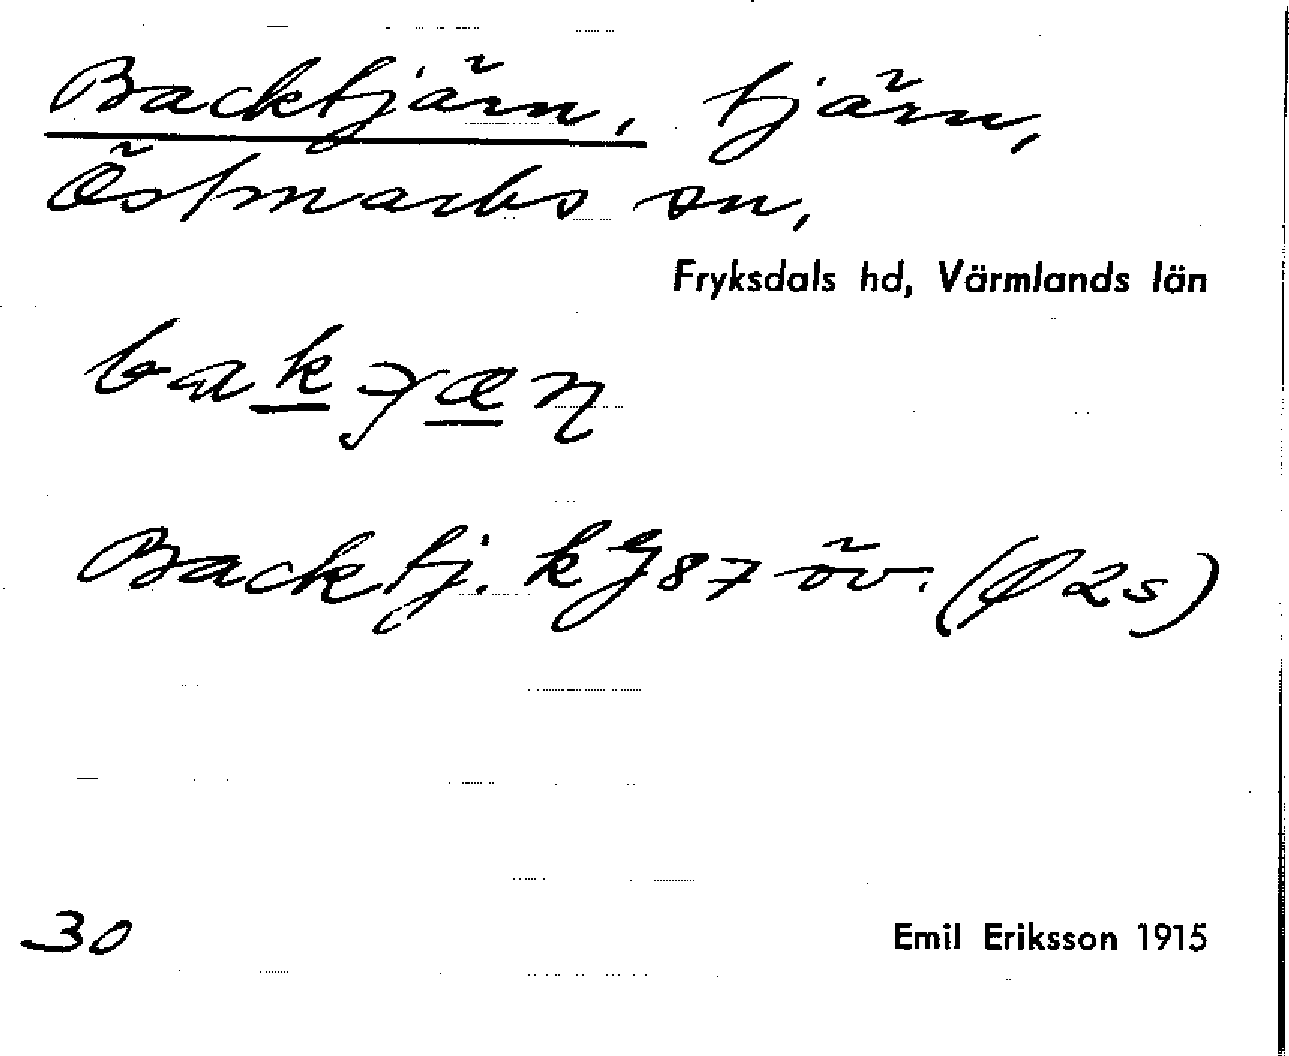 Backtjärn, tjärn,
Östmarks sn,
Fryksdals hd, Värmlands län
Backtj. kg 87 öv. (Ø 2s)
30
Emil Eriksson 1915